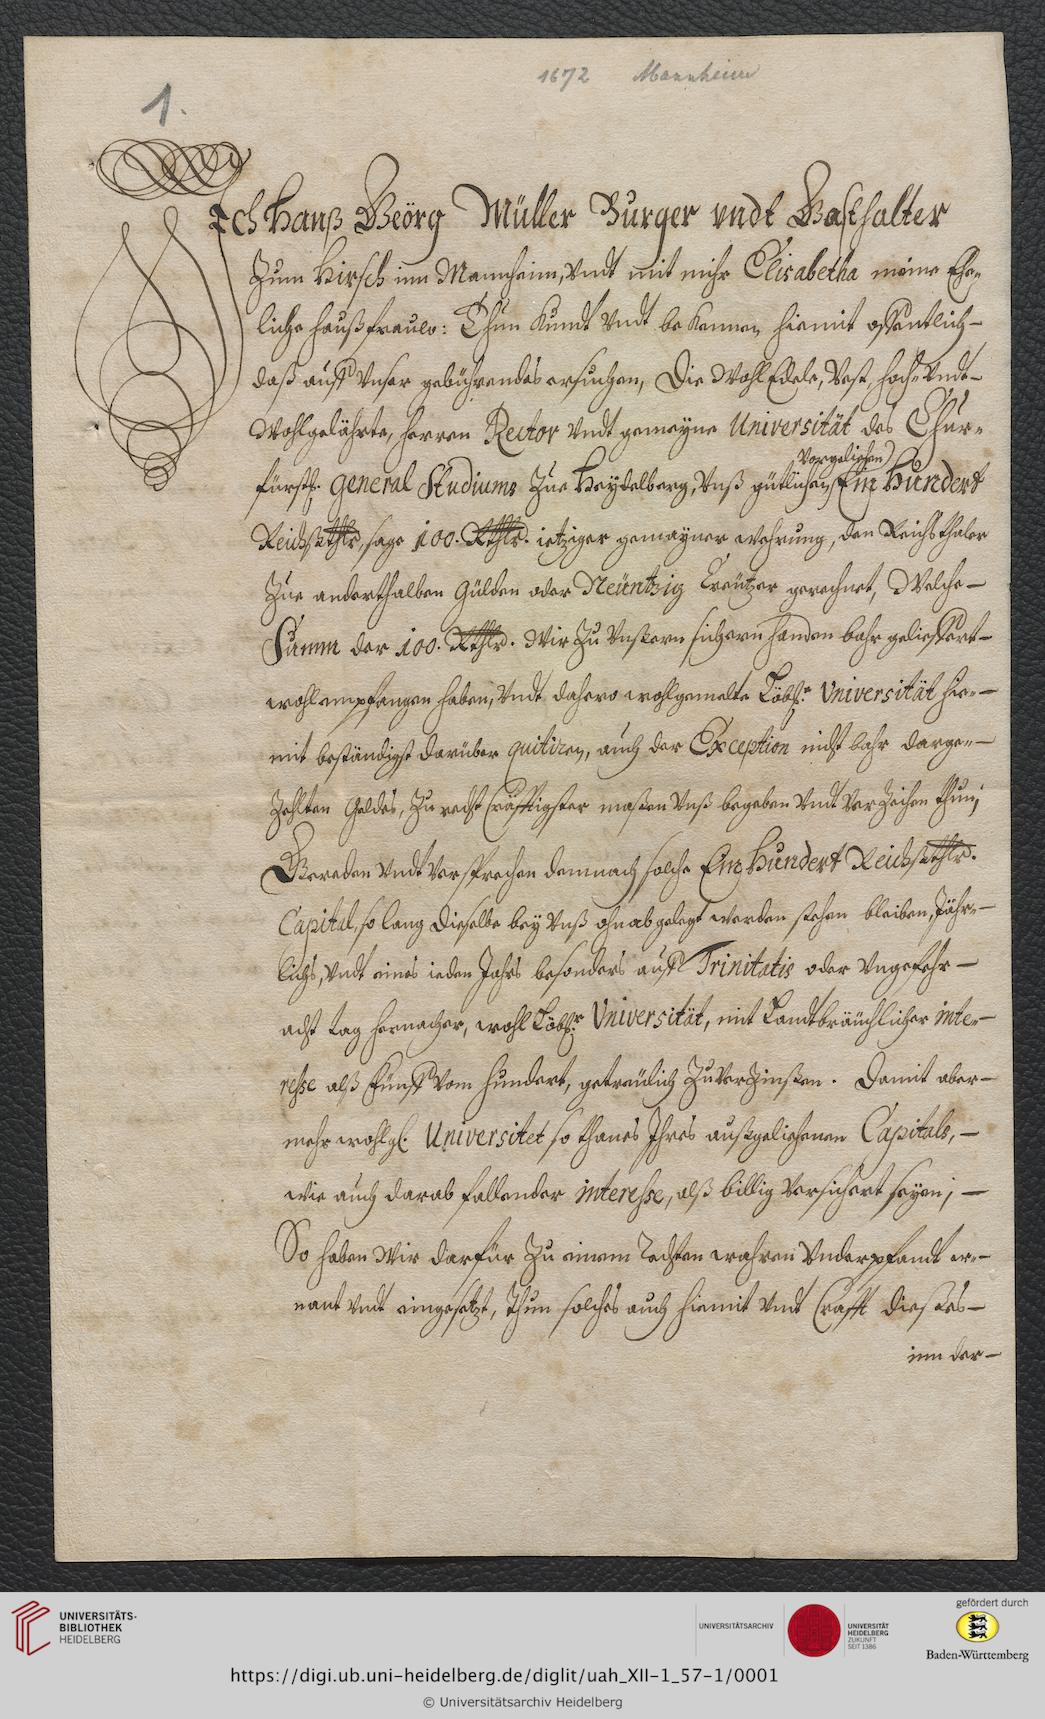 1672 Mannheim
1.
Ich Hanß Geörg Müller Burger vndt Gasthalter
Zum Hirsch inn Mannheim, Vndt mit mihr Elisabetha meine Ehe„
liche haußfrauw: Thun Kundt Vndt bekennen hiemit offentlich
daß auff Vnser gebührendes ersuchen, Die WohlEdele, Vest, hoch„ Vndt
Wohlgelährte, herren Rector Vndt gemeyne Universität des Chur„
vorgeliehen
fürstl. general Studiums Zue Heydelberg, Vnß gütlichen Ein Hundert
Reichßthlr, sage 100. Rthlr. ietziger gemeyner wehrung, den Reichsthaler
Zue anderthalben Gülden oder Neüntzig Creützer gerechnet, Welche
Summ der 100. Rthlr. Wir Zu Vnßern sichern handen bahr gelieffert
wohl empfangen haben, Vndt dahero wohlgemelte Löbl. Universität hie„
mit beständigst darüber quitiren, auch der Exception nicht bahr darge„
Zehlten Geldes, Zu recht Cräfftigster maßen Vnß begeben Vndt VerZeihen thun;
Gereden Vndt Versprechen demnach solche Ein Hundert Reichßthlr.
Capital, so lang Dieselbe bey Vnß ohnabgelegt werden stehen bleiben, Jähr„
lichs, Vndt eines ieden Jahrs besonders auff Trinitatis oder Vngefehr
acht tag hernacher, wohl Löblr. Universität, mit Landtbräuchlicher inte„
resse alß Fünff Vom hundert, getreülich ZuVerZinßen. Damit aber
mehr wohlgl. Universitet so thanes Ihres außgeliehenen Capitals,
wie auch darab fallender interesse, alß billig Versichert seyen;
So haben Wir darfür Zu einem rechten wahren Vnderpfandt er„
nant Vndt eingesetzt, Thun solches auch hiemit Vndt Crafft dießes
inn der
UNIVERSITÄTS-
BIBLIOTHEK
HEIDELBERG
UNIVERSITÄTSARCHIV
UNIVERSITÄT
HEIDELBERG
ZUKUNFT
SEIT 1386
gefördert durch
Baden-Württemberg
https://digi.ub.uni-heidelberg.de/diglit/uah_XII-1_57-1/0001
© Universitätsarchiv Heidelberg